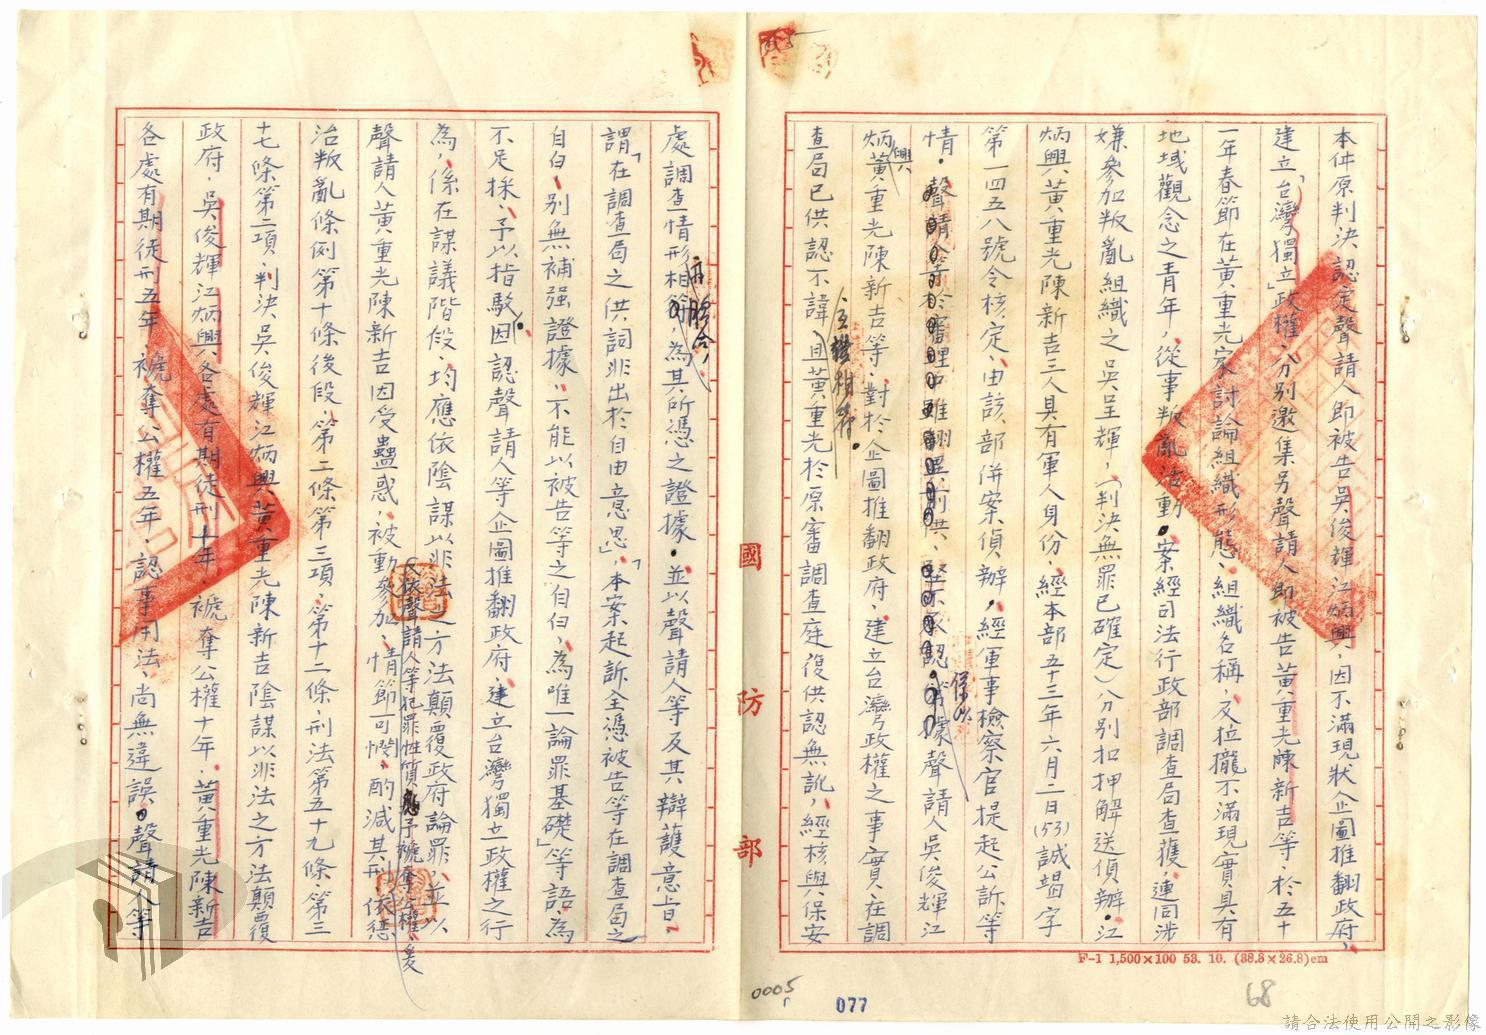 本件原判決認定聲請人即被告吳俊輝江炳興、因不滿現狀企圖推翻政府、
建立「台灣獨立」政權、分別邀集另聲請人即被告黃重光陳新吉等於五十
一年春節在黃重光家討論組織形態、組織名稱、及拉攏不滿現實具有
地域觀念之青年、從事叛亂活動。案經司法行政部調查局查獲、連同涉
嫌參加叛亂組織之吳呈輝、(判決無罪已確定)分別扣押解送偵辦。江
炳興黃重光陳新吉三人具有軍人身份、經本部五十三年六月二日(53)誠竭字
第一四五八號令核定、由該部併案偵辦、經軍事檢察官提起公訴等
情。聲請人等於審理中雖翻異前供、堅不承認、係以據聲請人吳俊輝江
炳興黃重光陳新吉等、對於企圖推翻政府、建立台灣政權之事實、在調
查局已供認不諱、互證相符。且黃重光於原審調查庭復供認無訛、經核與保安
處調查情形相吻合、為其所憑之證據。並以聲請人等及其辯護意旨、
謂「在調查局之供詞非出於自由意思」、「本案起訴全憑被告等在調查局之
自白、別無補强證據、不能以被告等之自白、為唯一論罪基礎」等語、為
不足採、予以指駁。因認聲請人等企圖推翻政府、建立台灣獨立政權之行
為、係在謀議階段、均應依陰謀以非法之方法顛覆政府論罪、並以
聲請人黃重光陳新吉因受蠱惑、被動參加、情節可憫、酌減其刑、及依聲請人等犯罪性質、予褫奪公權、爰依懲
治叛亂條例第十條後段、第二條第三項、第十二條、刑法第五十九條、第三
十七條第二項、判決吳俊輝江炳興黃重光陳新吉陰謀以非法之方法顛覆
政府、吳俊輝江炳興各處有期徒刑十年、褫奪公權十年、黃重光陳新吉
各處有期徒刑五年、褫奪公權五年、認事用法、尚無違誤。聲請人等
國防部
F-1 1,500×100 53. 10. (38.8×26.8)cm
0005
077
68
請合法使用公開之影像